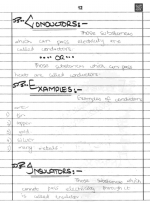 CONDUCTORS:-
Those substances
which can pass electricity are
called conductors.
OR
Those substances which can pass
heat are called conductors.
EXAMPLES:-
Examples of conductors
are:-
gold
silver
many metals
INSULATORS:-
Those substances which
cannot pass electricity through it
is called insulator.